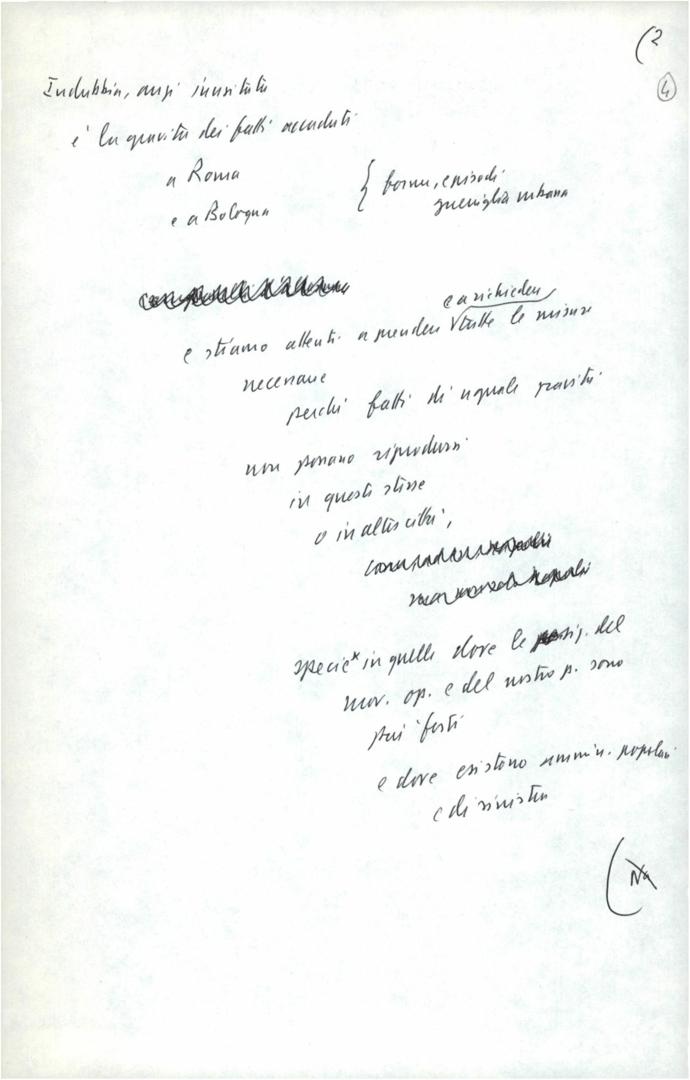 (2
4
Indubbia, anzi inusitata
e' la gravità dei fatti accaduti
a Roma
e a Bologna
{ forme, episodi
guerriglia urbana
e a richiedere
e stiamo attenti a prendere tutte le misure
necessarie
perché fatti di uguale gravità
non possano riprodursi
in queste stesse
o in altre città,
specie* in quelle dove le pos. del
mov. op. e del nostro p. sono
più forti
e dove esistono ammin. popolari
e di sinistra